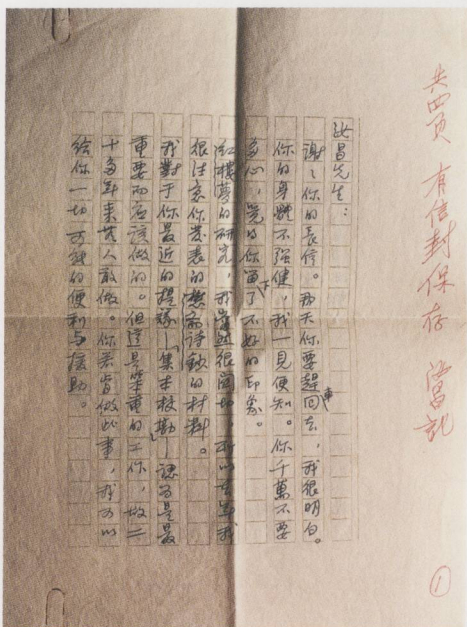 共四頁 有信封保存 當記
①
汝昌先生：
謝々你的長信。那天你要趕車回去，我很明白。
你的身體不强健，我一見便知。你千萬不要
多心，覺的你留下了不好的印象。
紅樓夢的研究，我最近很
很注意你發表的懋齋詩鈔的材料。
我對于你最近的提議—「集本校勘」—認為是最
重要而应該做的。但這是笨重的工作，故二
十多年來無人敢做。你若肯做此事，我可以
給你一切可能的便利与援助。